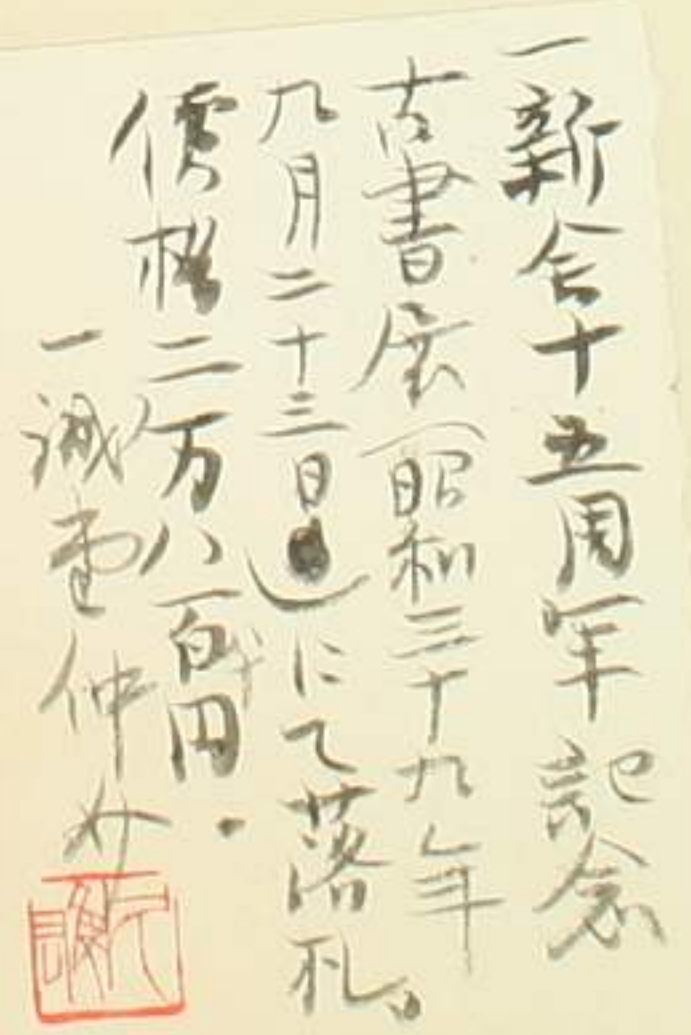 一新会十五周年記念
古書展(昭和三十九年
九月二十三日)にて落札。
價格二万八百円.
一誠堂仲介